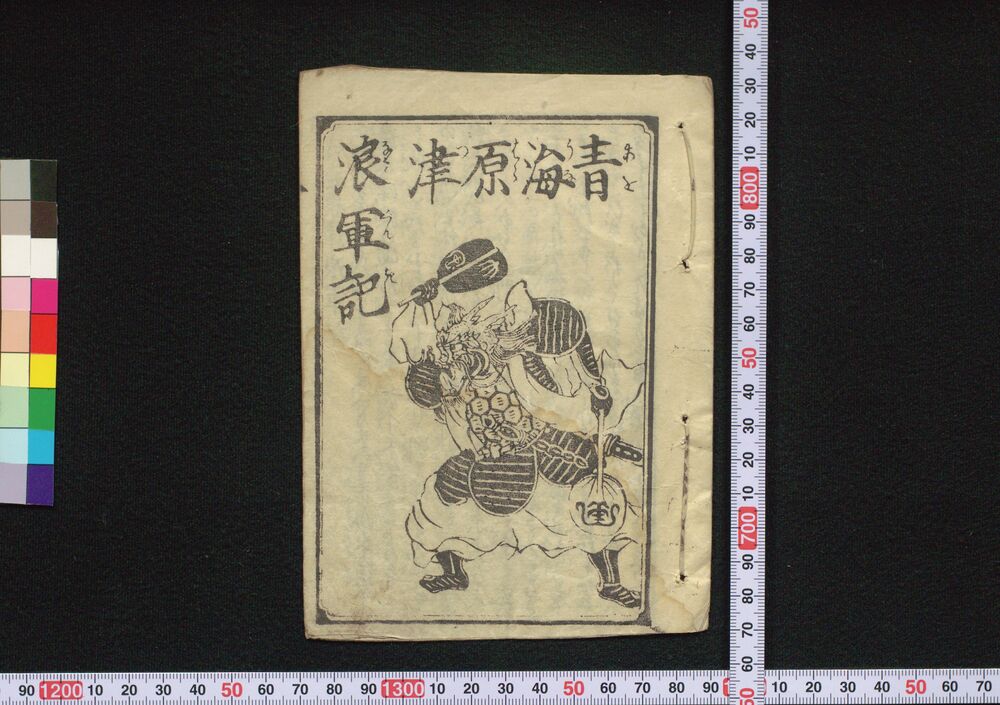 青海原津
浪軍記
あを
うみ
はら
つ
なみ
ぐんき
90 1200 10 20 30 40 50 60 70 80 90 1300 10 20 30 40 50 60 70 80 90 10 20 30 40 50 60 70
50
40
30
20
10
800
90
80
70
60
50
40
30
20
10
700
90
80
70
60
50